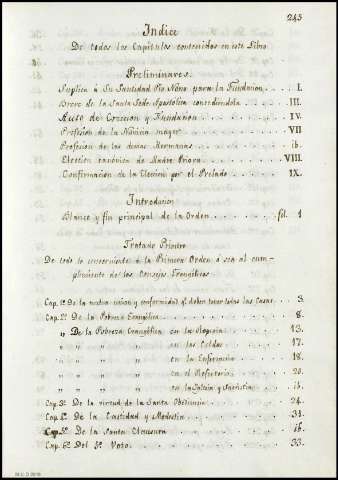 245
Indice
De todos los Capitulos contenidos en este Libro
Preliminares.
Suplica á Su Santidad Pio Nono para la Fundacion . . . I.
Breve de la Santa Sede Apostolica concediendola . . . . III.
Auto de Ereccion y Fundacion . . . . . . IV.
Profesion de la Novicia mayor . . . . . . VII
Profesion de las demas Hermanas . . . . . . ib.
Eleccion canónica de Madre Priora . . . . . . VIII.
Confirmacion de la Eleccion por el Prelado . . . . IX.
Introducion
Blanco y fin principal de la Orden . . . . . fol. 1
Tratado Primero
De todo lo concerniente á la Primera Orden ó sea al cum-
plimiento de los Consejos Evangélicos
Cap. 1º De la mutua union y conformidad q! deben tener todas las Casas . . 3
Cap. 2º De la Pobreza Evangélica . . . . . . 8
,, De la Pobreza Evangélica en la Ropería . . . . 13.
,, ,, ,, en las Celdas . . . . 17.
,, ,, ,, en la Enfermería . . . . 18.
,, ,, ,, en el Refectorio . . . . 20.
,, ,, ,, en la Iglesia y Sacristia . . ib.
Cap. 3º De la virtud de la Santa Obediencia . . . . 24.
Cap. 4º De la Castidad y Modestia . . . . . 31.
Cap. 5º De la Santa Clausura . . . . . . ib.
Cap. 6º Del 5º Voto . . . . . . 33.